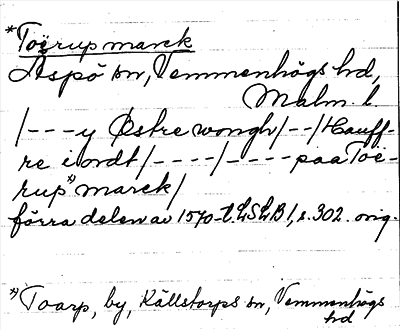 *Toërup marck
Äspö sn, Vemmenhögs hd,
Malm. l
/---y Østre wongh/--/Hauff-
re iordt/----/----paa Toë-
rup*) marck/
förra delen av 1570-t. LSLB 1, s. 302. orig.
*) Toarp, by, Källstorps sn, Vemmenhögs
hd